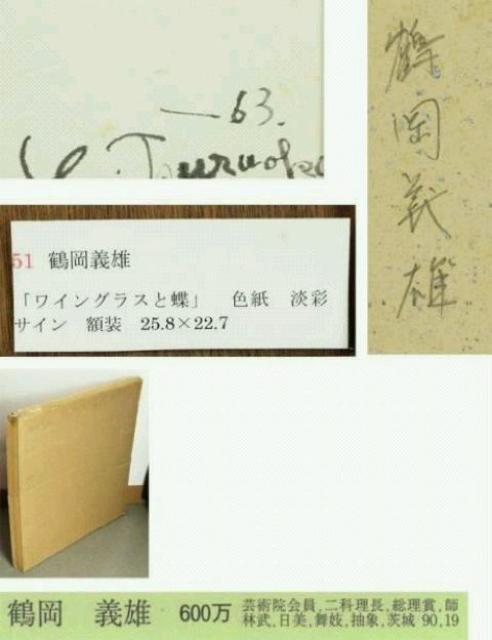 —63.
Y. Tsuruoka
鶴岡義雄
51 鶴岡義雄
「ワイングラスと蝶」 色紙 淡彩
サイン 額装 25.8×22.7
鶴岡 義雄 600万 芸術院会員,二科理長,総理賞,師
林武,日美,舞妓,抽象,茨城 90,19